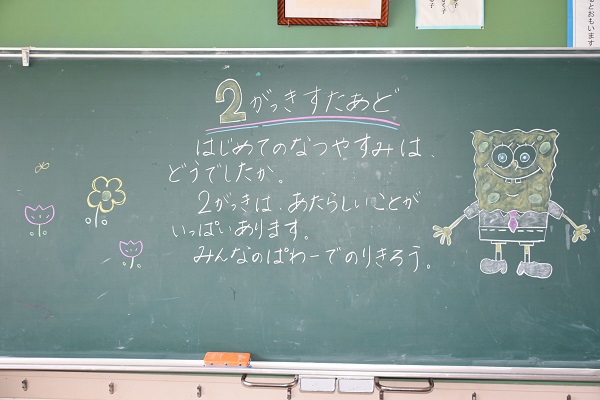 2がっきすたあど
はじめてのなつやすみは、
どうでしたか。
2がっきは、あたらしいことが
いっぱいあります。
みんなのぱわーでのりきろう。
とおもいます